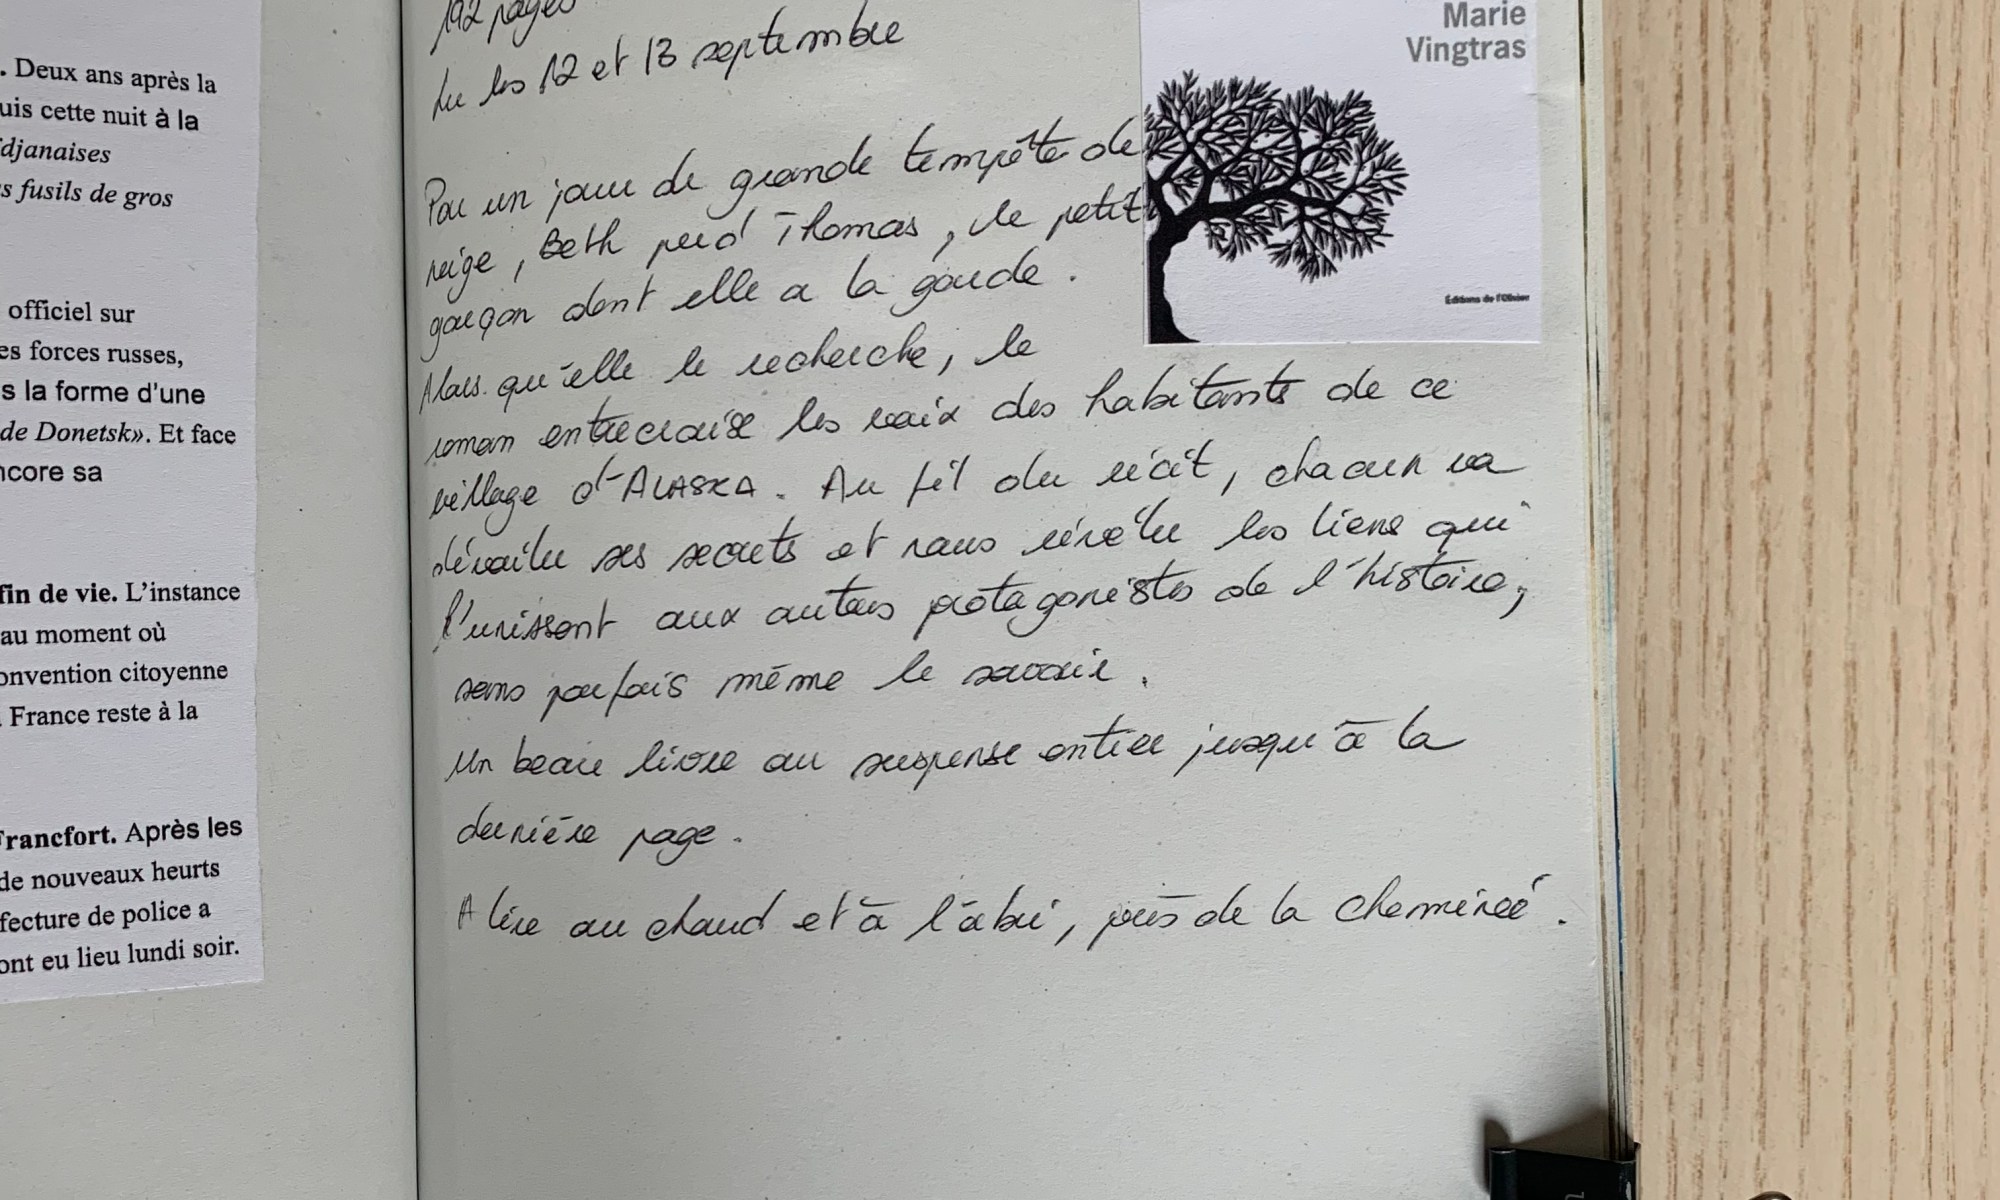 . Deux ans après la
uis cette nuit à la
djanaises
s fusils de gros
officiel sur
es forces russes,
s la forme d'une
de Donetsk». Et face
ncore sa
fin de vie. L'instance
au moment où
onvention citoyenne
. France reste à la
Francfort. Après les
de nouveaux heurts
fecture de police a
ont eu lieu lundi soir.
192 pages
Lu les 12 et 13 septembre
Par un jour de grande tempête de
neige, Beth perd Thomas, le petit
garçon dont elle a la garde.
Alors qu'elle le recherche, le
roman entrecroise les voix des habitants de ce
village d'ALASKA. Au fil du récit, chacun va
dévoiler ses secrets et nous révéler les liens qui
l'unissent aux autres protagonistes de l'histoire,
sans parfois même le savoir.
Un beau livre au suspense entier jusqu'à la
dernière page.
A lire au chaud et à l'abri, près de la cheminée.
Marie
Vingtras
Éditions de l'Olivier